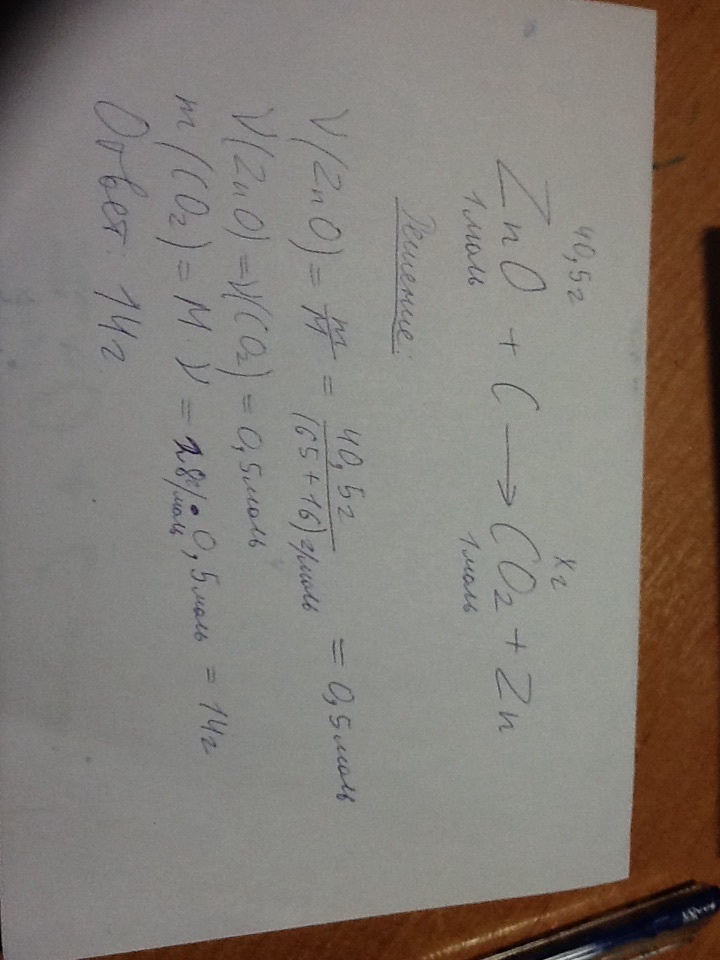 40,5г xг
ZnO + C → CO₂ + Zn
1моль 1моль
Решение:
ν(ZnO) = m/M = 40,5г/(65+16)г/моль = 0,5моль
ν(ZnO) = ν(CO₂) = 0,5моль
m(CO₂) = M · ν = 28г/моль · 0,5моль = 14г
Ответ: 14г